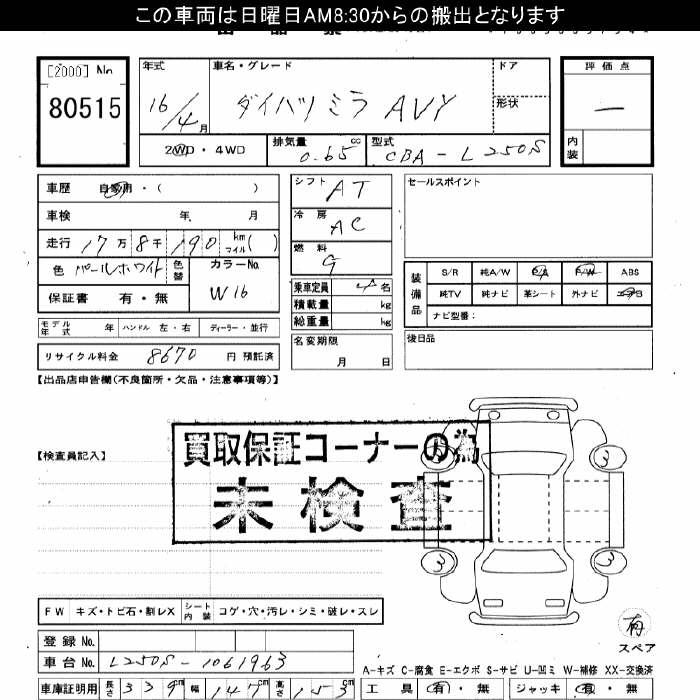 この車両は日曜日AM8:30からの搬出となります
[2000] No
80515
年式 車名・グレード ドア 評価点
16/4月 ダイハツミラ AVY 形状 —
2WD・4WD 排気量 0.65 cc 型式 CBA-L250S 内装
車歴 自家用・( ) シフト AT セールスポイント
車検 年 月 冷房 AC
走行 17万8千190 km マイル( ) 燃料 G
色 パールホワイト 色替 カラーNo. W16
装備品 S/R 純A/W P/S P/W ABS
純TV 純ナビ 革シート 外ナビ エアB
ナビ型番:
保証書 有・無 乗車定員 4名
積載量 kg
総重量 kg
モデル年式 年 ハンドル 左・右 ディーラー・並行
リサイクル料金 8670 円 預託済 名変期限 月 日 後日品
【出品店申告欄(不良箇所・欠品・注意事項等)】
【検査員記入】
買取保証コーナーの為
未検査
3 3
3 3
FW キズ・トビ石・割レX シート内装 コゲ・穴・汚レ・シミ・破レ・スレ
有
スペア
登録 No.
車台 No. L250S-1061963
A-キズ C-腐食 E-エクボ S-サビ U-凹ミ W-補修 XX-交換済
車庫証明用 長さ 339cm 幅 147cm 高さ 153cm 工具 有・無 ジャッキ 有・無